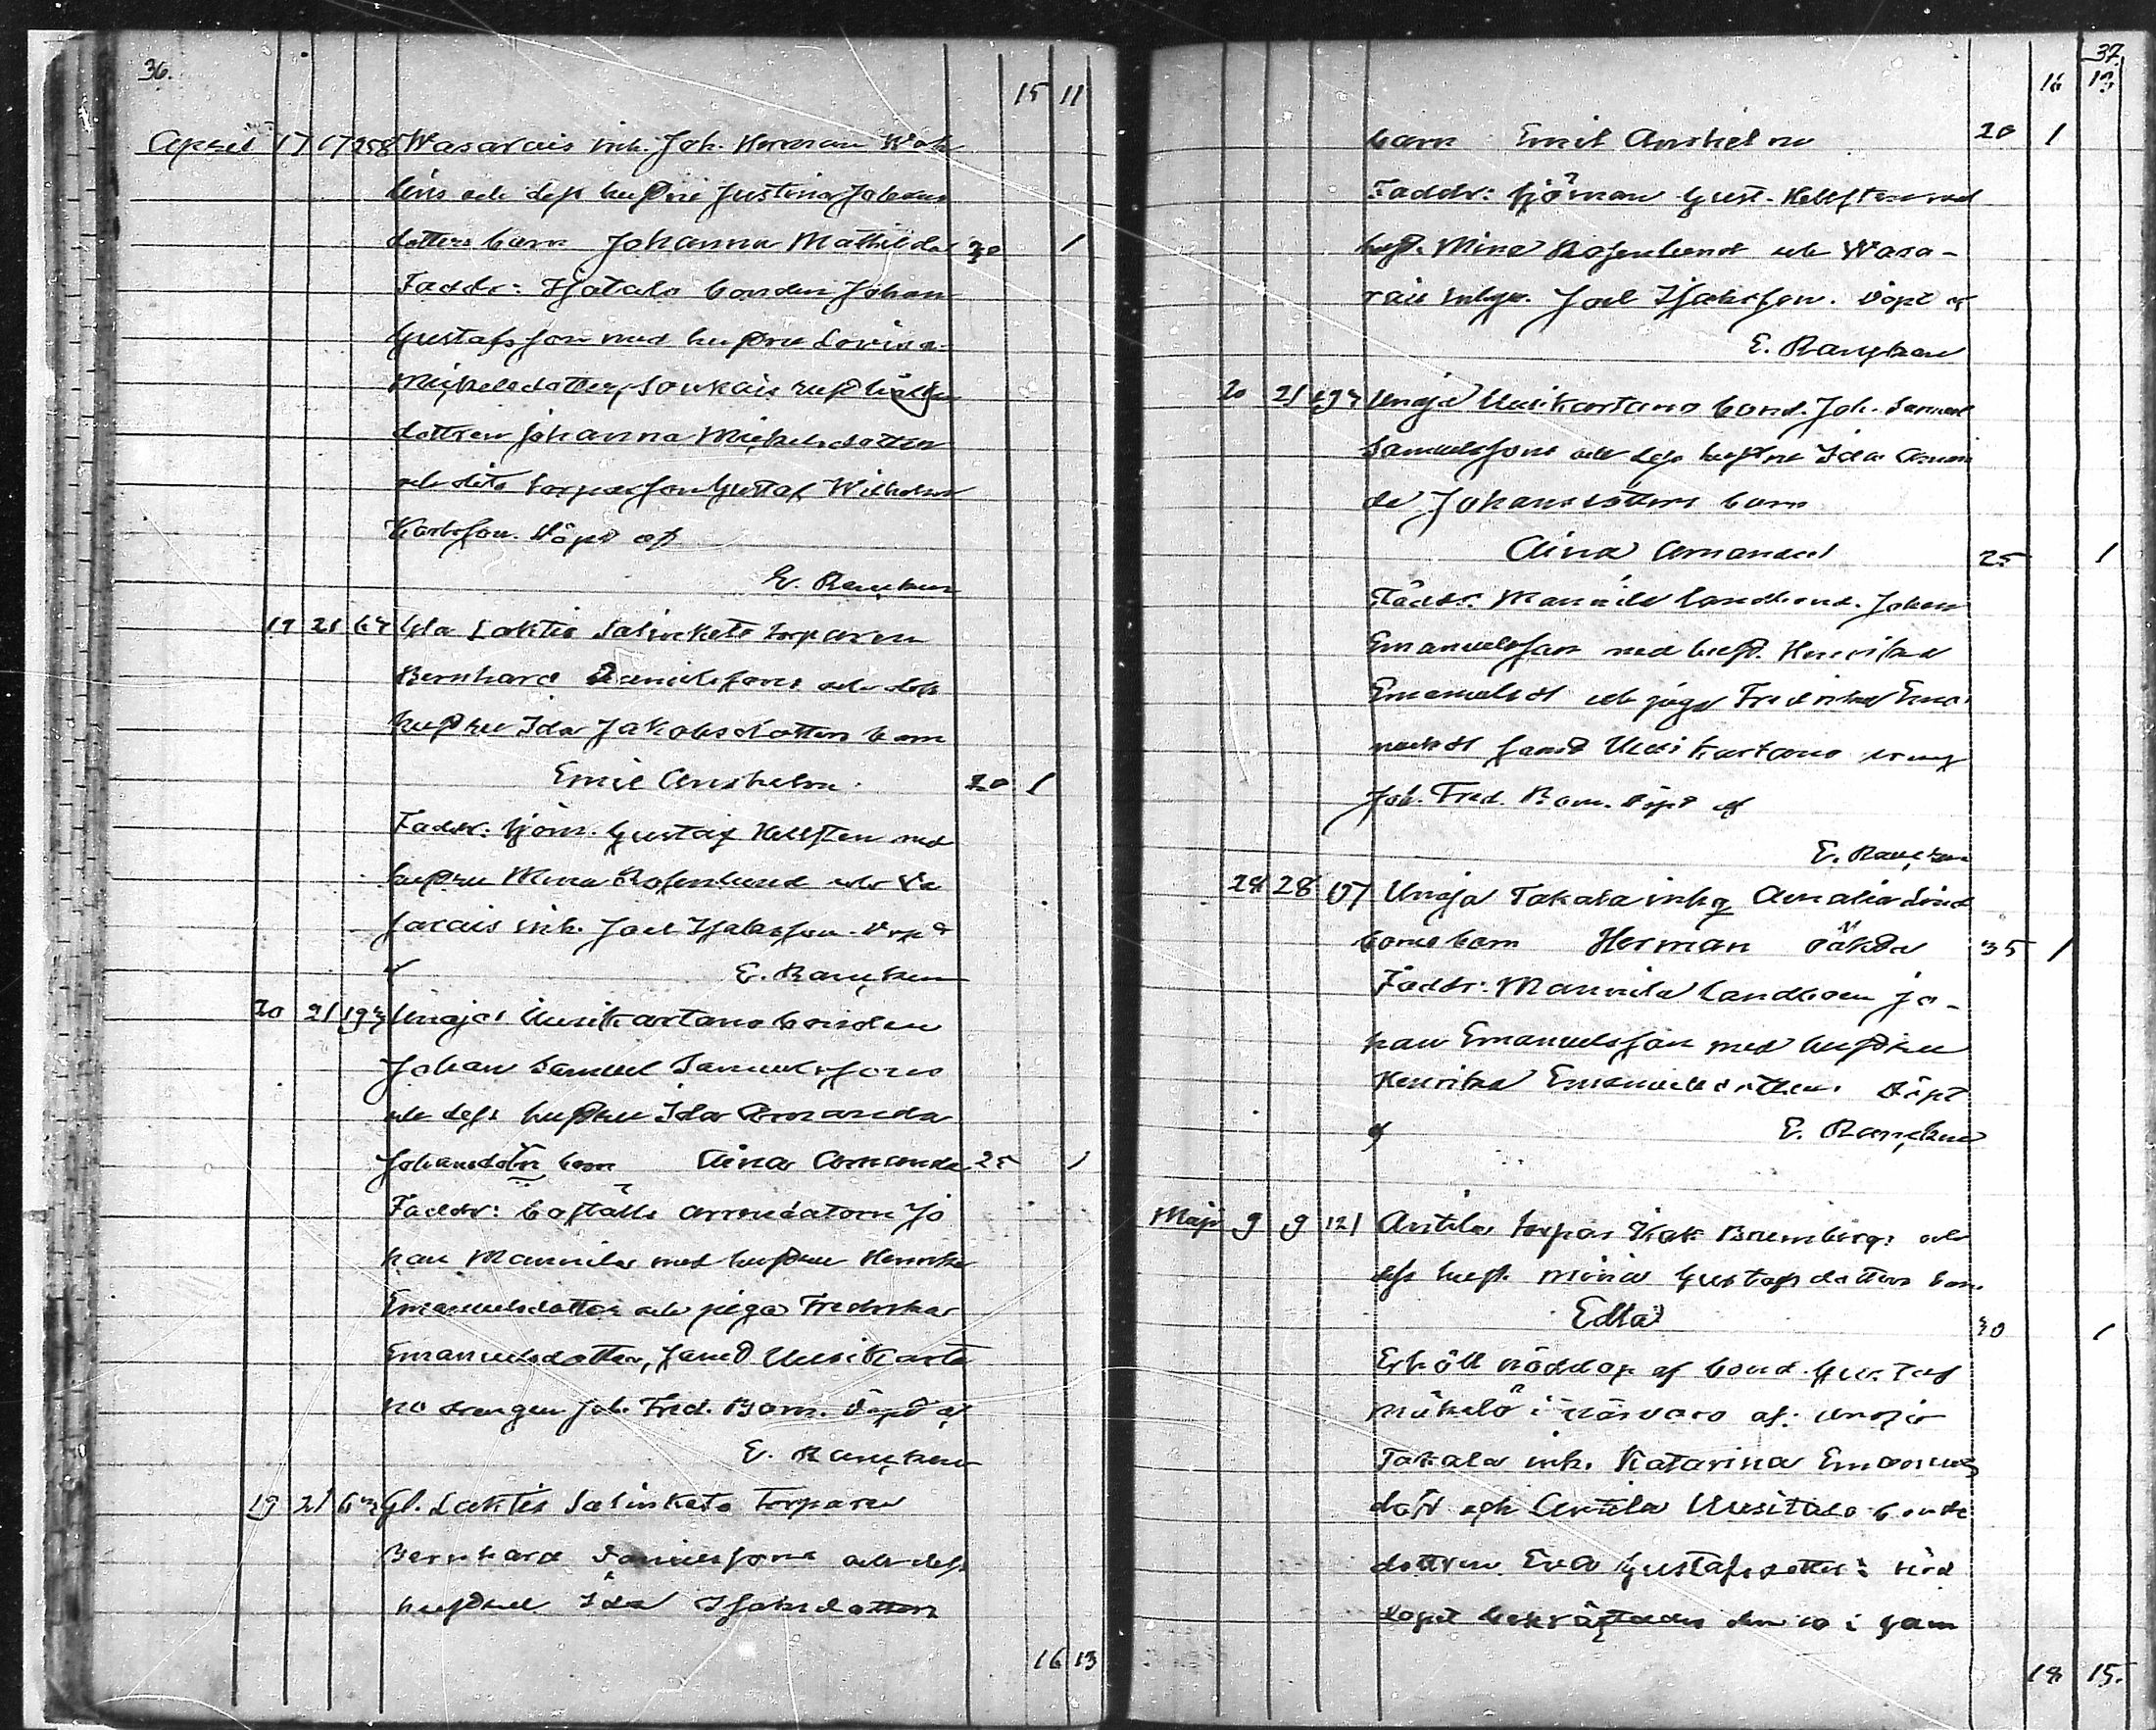 36.
15 11
April 17 17 258 Wasarais inh. Joh. Herman Wah
lins och dess hustru Justina Johans
dotters barn Johanna Mathilda 30 1
Faddr: Isotalo bonden Johan
Gustafsson med hustru Lovisa
Mickelsdotter, Soukais
dottren Johanna Mickelsdotter
och dito torparson Gustaf Wilhelm
Karlsson. Döpt af
E. Rancken
19 21 67 Gla Laktis Salinketo torparen
Bernhard Danielssons och dess
hustru Ida Jakobsdotters barn
Emil Anshelm 20 1
Faddr: sjöm. Gustaf Hellsten med
hustru Mina Rosenlund och Va
sarais inh. Joel Isaksson. Döpt
af E. Rancken
20 21 197 Unaja Uusikartano bonden
Johan Samuel Samuelssons
och dess hustru Ida Amanda
Johansdotrs barn Aina Amanda 25 1
Faddr: boställs arrendatorn Jo
han Mannila med hustru Henrika
Emanuelsdotter och piga Fredrika
Emanuelsdotter, samt Uusikarta
no drengen Joh. Fred. Bom. Döpt af
E. Rancken
19 21 67 Gl. Laktis Salinketo torparen
Bernhard Danielssons och dess
hustru Ida Isaksdotters
16 13
37.
16 13
barn Emil Anshelm 20 1
Faddr: sjöman Gust. Hellsten med
hust. Mina Rosenlund och Wasa-
rais inhys. Joel Isaksson. Döpt af
E. Rancken
20 21 197 Unaja Uusikartano bond. Joh. Samuel
Samuelssons och dess hustru Ida Aman
da Johansdotters barn
Aina Amanda 25 1
Faddr: Mannila landbond. Johan
Emanuelsson med hust. Henrika
Emanuelsdt och piga Fredrika Ema
nuelsdt samt Uusikartano dreng
Joh. Fred. Bom. Döpt af
E. Rancken
28 28 Unaja Takala inhq Amalia Lind
boms barn Herman oäkta 35 1
Faddr: Mannila landboen Jo-
han Emanuelsson med hustru
Henrika Emanuelsdotter. Döpt
af E. Rancken
Maji 9 9 121 Anttila torpar Isak Brunbergs och
dess hust. Mina Gustafsdotters barn
Edla 30 1
Erhöll nöddop af bond. Gustaf
Mikelö i närvaro af: Unaja
Takala inh. Katarina Emanuels
dotr och Anttila Uusitalo bonde
dottren Eva Gustafsdotter: nöd
dopet bekräftades den 10 i sam
18 15.